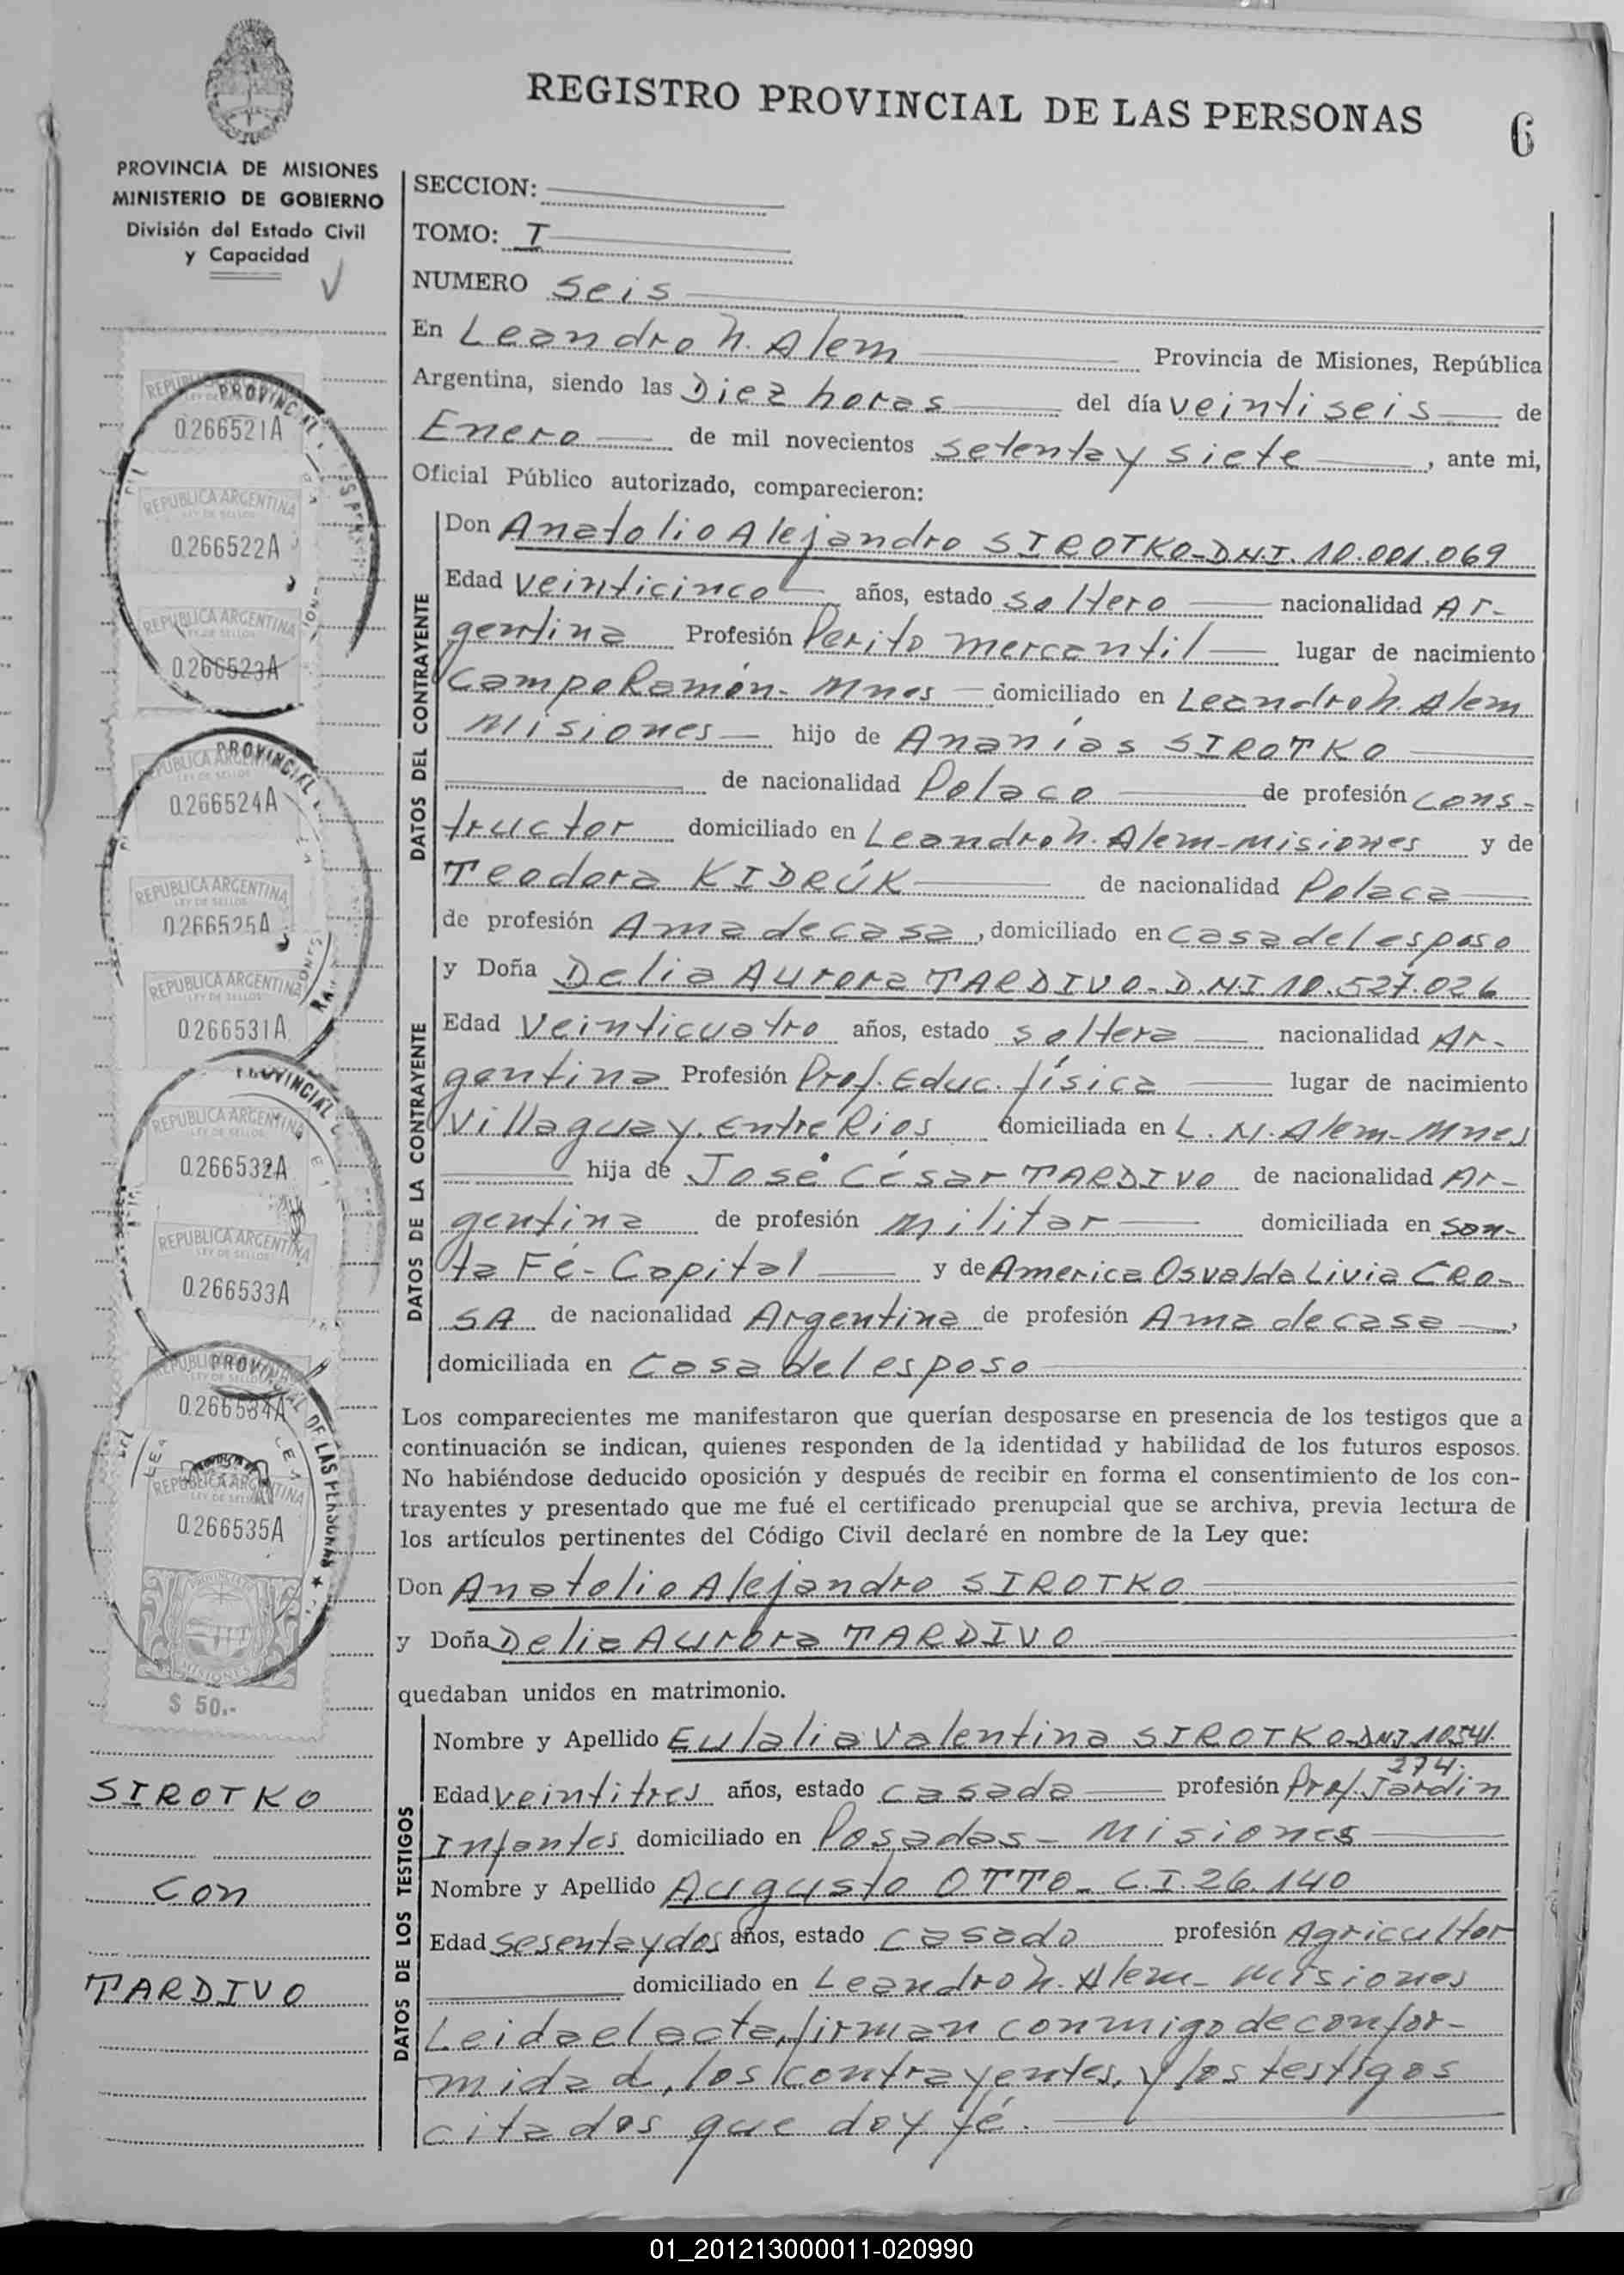 REGISTRO PROVINCIAL DE LAS PERSONAS
6
PROVINCIA DE MISIONES
MINISTERIO DE GOBIERNO
División del Estado Civil
y Capacidad
SECCION:
TOMO: I
NUMERO Seis
En Leandro N. Alem Provincia de Misiones, República
Argentina, siendo las Diez horas del día veintiseis de
Enero de mil novecientos setenta y siete, ante mi,
Oficial Público autorizado, comparecieron:
DATOS DEL CONTRAYENTE
Don Anatolio Alejandro SIROTKO-DNI. 10.001.069
Edad veinticinco años, estado soltero nacionalidad Ar-
gentina Profesión Perito mercantil lugar de nacimiento
Campo Ramón - Mnes domiciliado en Leandro N. Alem
Misiones hijo de Ananías SIROTKO
de nacionalidad Polaco de profesión cons-
tructor domiciliado en Leandro N. Alem-Misiones y de
Teodora KIDRÚK de nacionalidad Polaca
de profesión Ama de casa, domiciliado en casa del esposo
DATOS DE LA CONTRAYENTE
y Doña Delia Aurora TARDIVO-D.N.I 10.527.026
Edad veinticuatro años, estado soltera nacionalidad Ar-
gentina Profesión Prof. Educ. física lugar de nacimiento
Villaguay. Entre Rios domiciliada en L. N. Alem-Mnes
hija de José César TARDIVO de nacionalidad Ar-
gentina de profesión militar domiciliada en San-
ta Fé-Capital y de America Osvalda Livia CRO-
SA de nacionalidad Argentina de profesión Ama de casa,
domiciliada en Casa del esposo
Los comparecientes me manifestaron que querían desposarse en presencia de los testigos que a
continuación se indican, quienes responden de la identidad y habilidad de los futuros esposos.
No habiéndose deducido oposición y después de recibir en forma el consentimiento de los con-
trayentes y presentado que me fué el certificado prenupcial que se archiva, previa lectura de
los artículos pertinentes del Código Civil declaré en nombre de la Ley que:
Don Anatolio Alejandro SIROTKO
y Doña Delia Aurora TARDIVO
quedaban unidos en matrimonio.
DATOS DE LOS TESTIGOS
Nombre y Apellido Eulalia Valentina SIROTKO-DNI. 10541.
274.
Edad veintitres años, estado casada profesión Prof. Jardin
Infantes domiciliado en Posadas - Misiones
Nombre y Apellido Augusto OTTO- C.I. 26.140
Edad sesenta y dos años, estado casado profesión Agricultor
domiciliado en Leandro N. Alem-Misiones
Leida el acta, firman conmigo de confor-
midad, los contrayentes, y los testigos
citados que doy fé.
REPUBLICA ARGENTINA
LEY DE SELLOS
0.266521A
REPUBLICA ARGENTINA
LEY DE SELLOS
0.266522A
REPUBLICA ARGENTINA
LEY DE SELLOS
0.266523A
REPUBLICA ARGENTINA
LEY DE SELLOS
0.266524A
REPUBLICA ARGENTINA
LEY DE SELLOS
0.266525A
REPUBLICA ARGENTINA
LEY DE SELLOS
0.266531A
REPUBLICA ARGENTINA
LEY DE SELLOS
0.266532A
REPUBLICA ARGENTINA
LEY DE SELLOS
0.266533A
REPUBLICA ARGENTINA
LEY DE SELLOS
0.266534A
REPUBLICA ARGENTINA
LEY DE SELLOS
0.266535A
PROVINCIAL DE LAS PERSONAS
MISIONES
$ 50.-
SIROTKO
con
TARDIVO
01_201213000011-020990